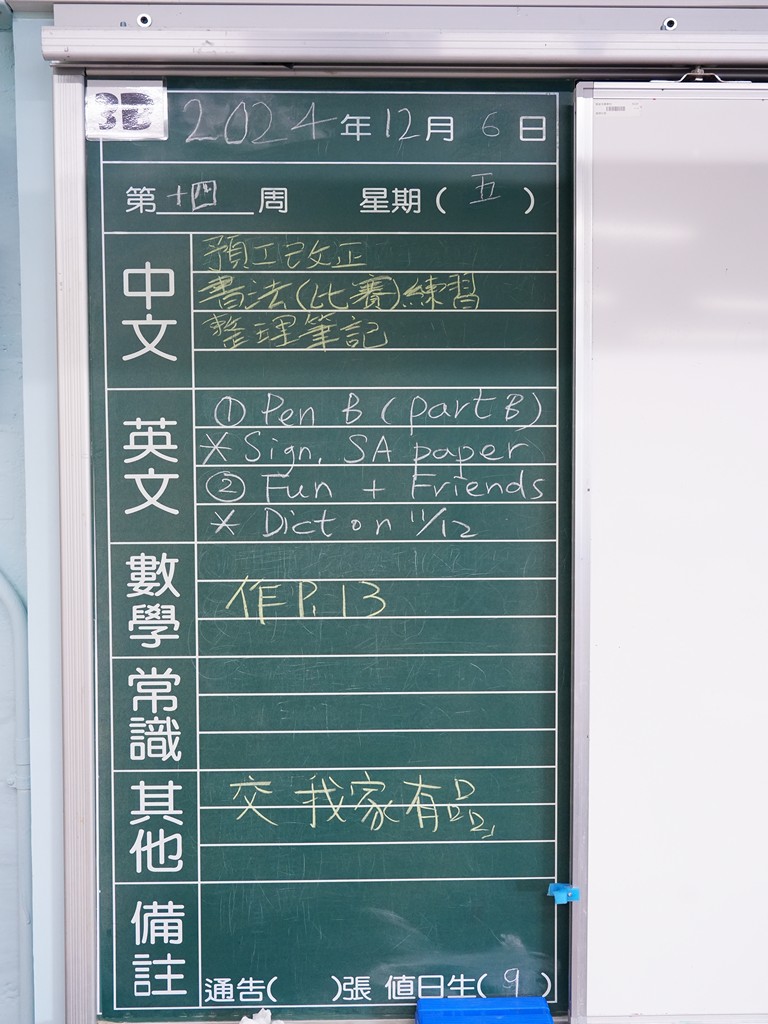 3B
2024年12月6日
第十四周 星期(五)
中文
預工改正
書法(比賽)練習
整理筆記
英文
① Pen B (part B)
* Sign. SA paper
② Fun + Friends
* Dict on 11/12
數學
作P.13
常識
其他
交 我家有品
備註
通告( )張 值日生(9)